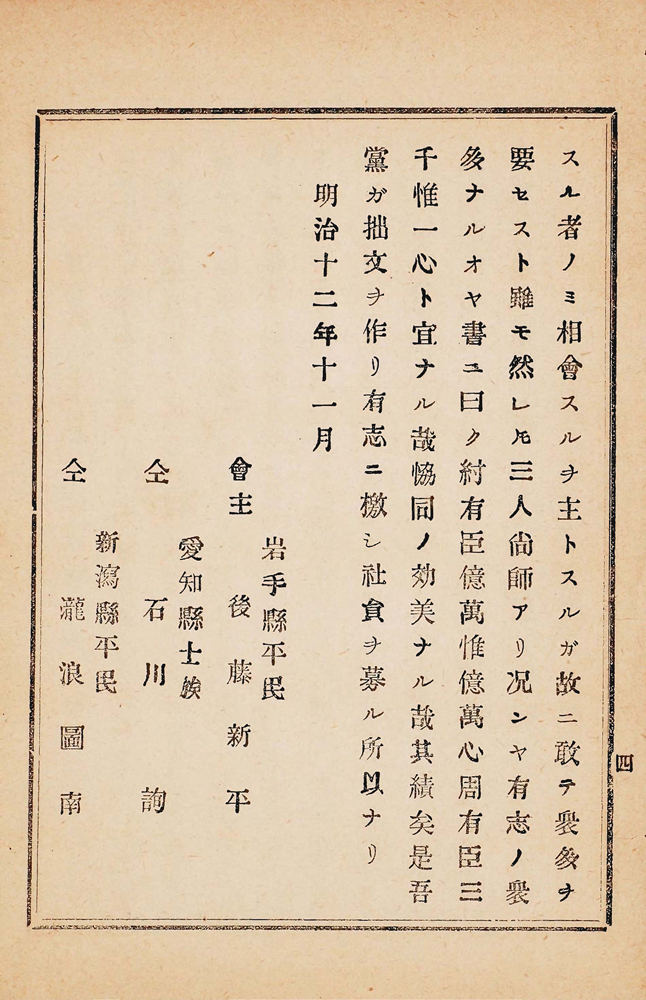 スル者ノミ相會スルヲ主トスルガ故ニ敢テ衆多ヲ
要セスト雖モ然レ𪜈三人尙師アリ况ンヤ有志ノ衆
多ナルオヤ書ニ曰ク紂有臣億萬惟億萬心周有臣三
千惟一心ト宜ナル哉恊同ノ効美ナル哉其績矣是吾
黨ガ拙文ヲ作リ有志ニ檄シ社員ヲ募ル所以ナリ
明治十二年十一月
岩手縣平民
會主 後藤新平
愛知縣士族
仝 石川詢
新瀉縣平民
仝 瀧浪圖南
四